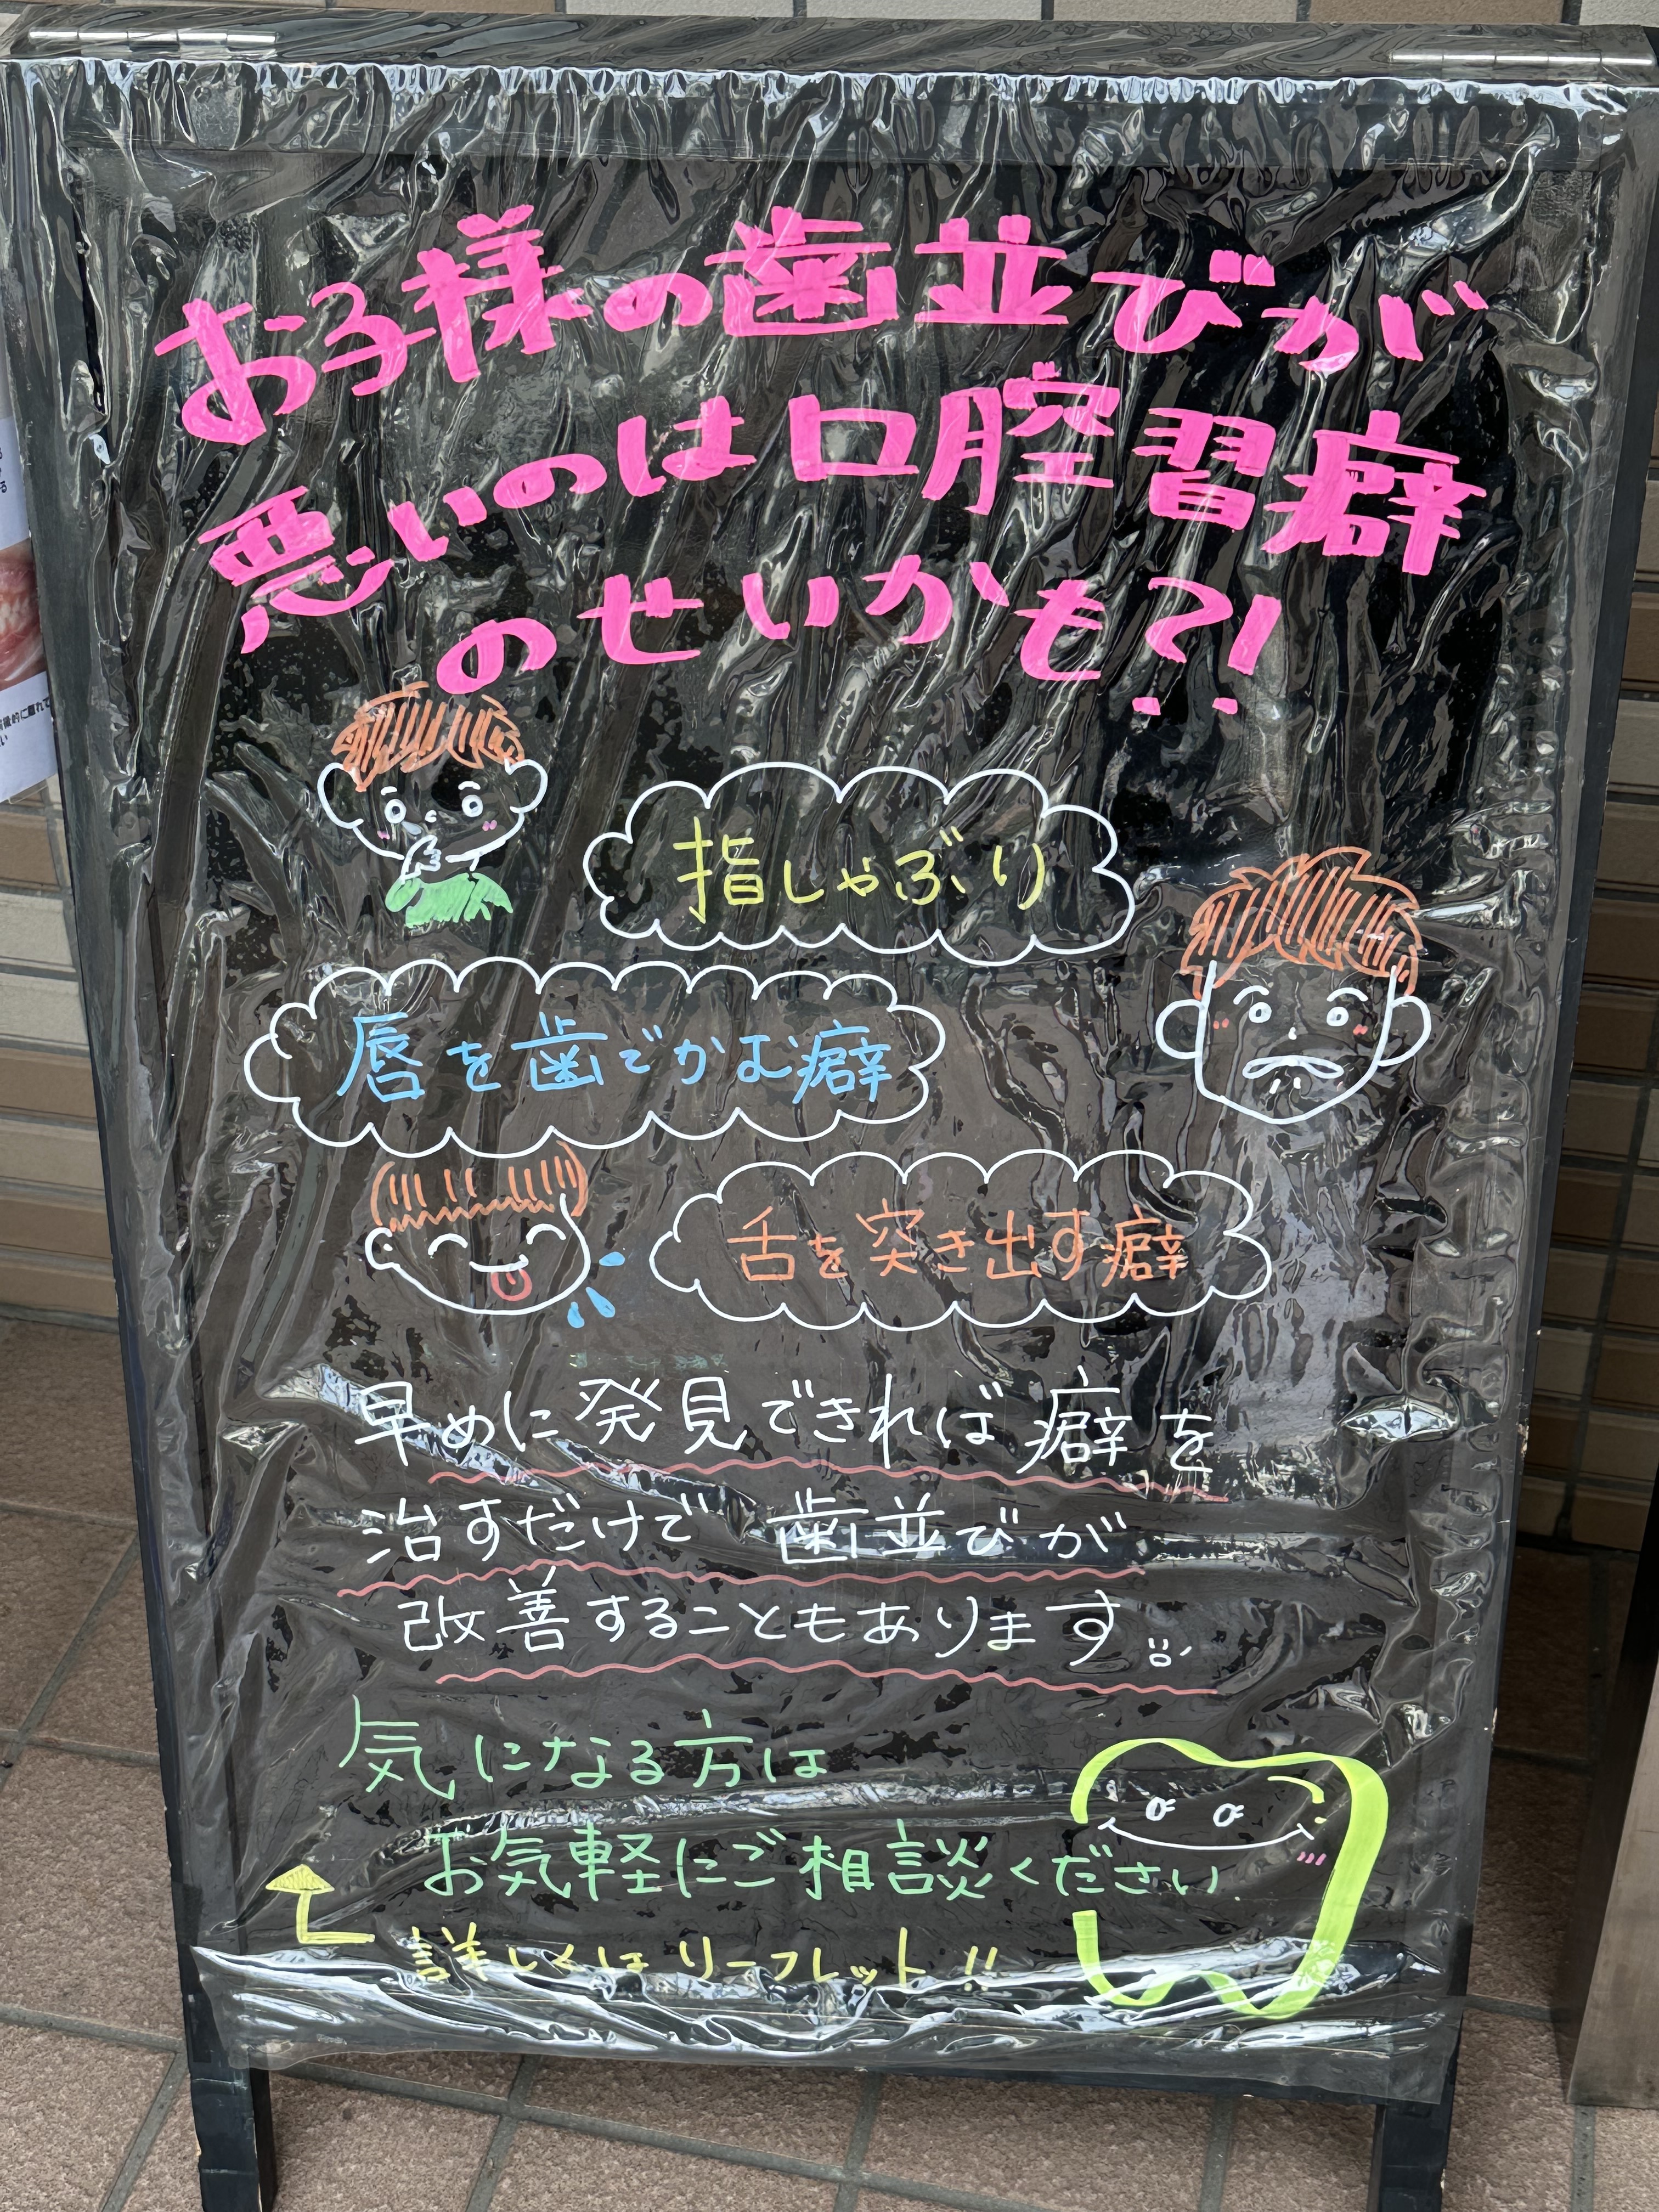 お子様の歯並びが
悪いのは口腔習癖
のせいかも?!
指しゃぶり
唇を歯でかむ癖
舌を突き出す癖
早めに発見できれば癖を
治すだけで歯並びが
改善することもあります
気になる方は
お気軽にご相談ください
詳しくはリーフレット!!